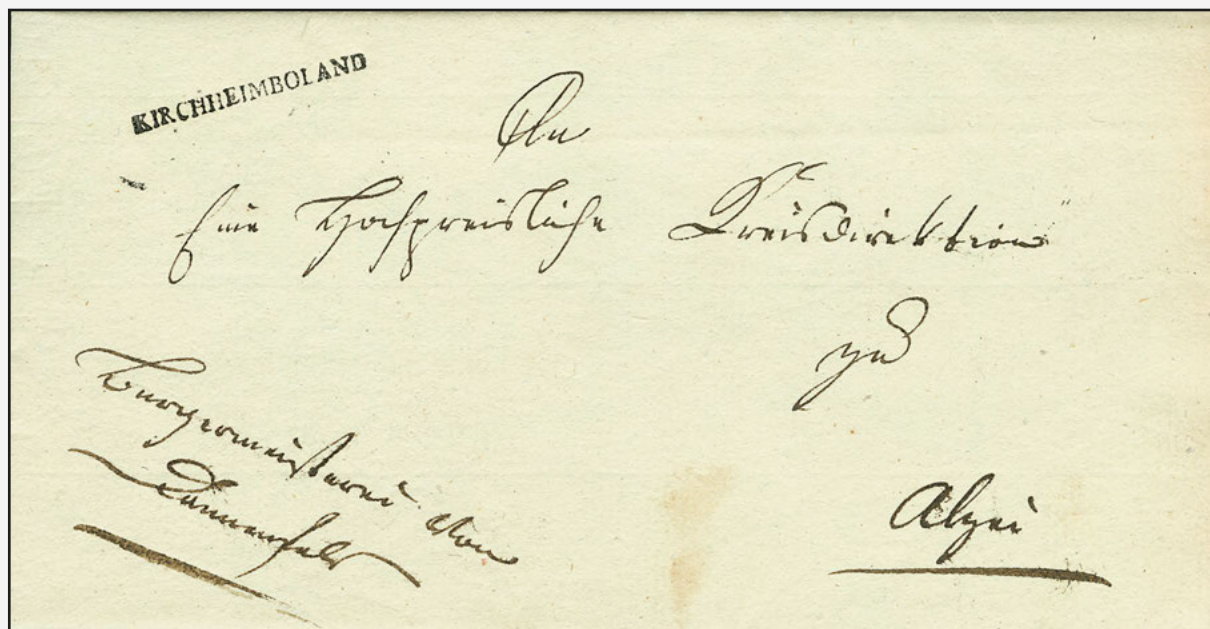 KIRCHHEIMBOLAND
An
Eine Hochpreisliche Kreisdirektion
zu
Alzei
Burgermeisterei von
Dannenfels